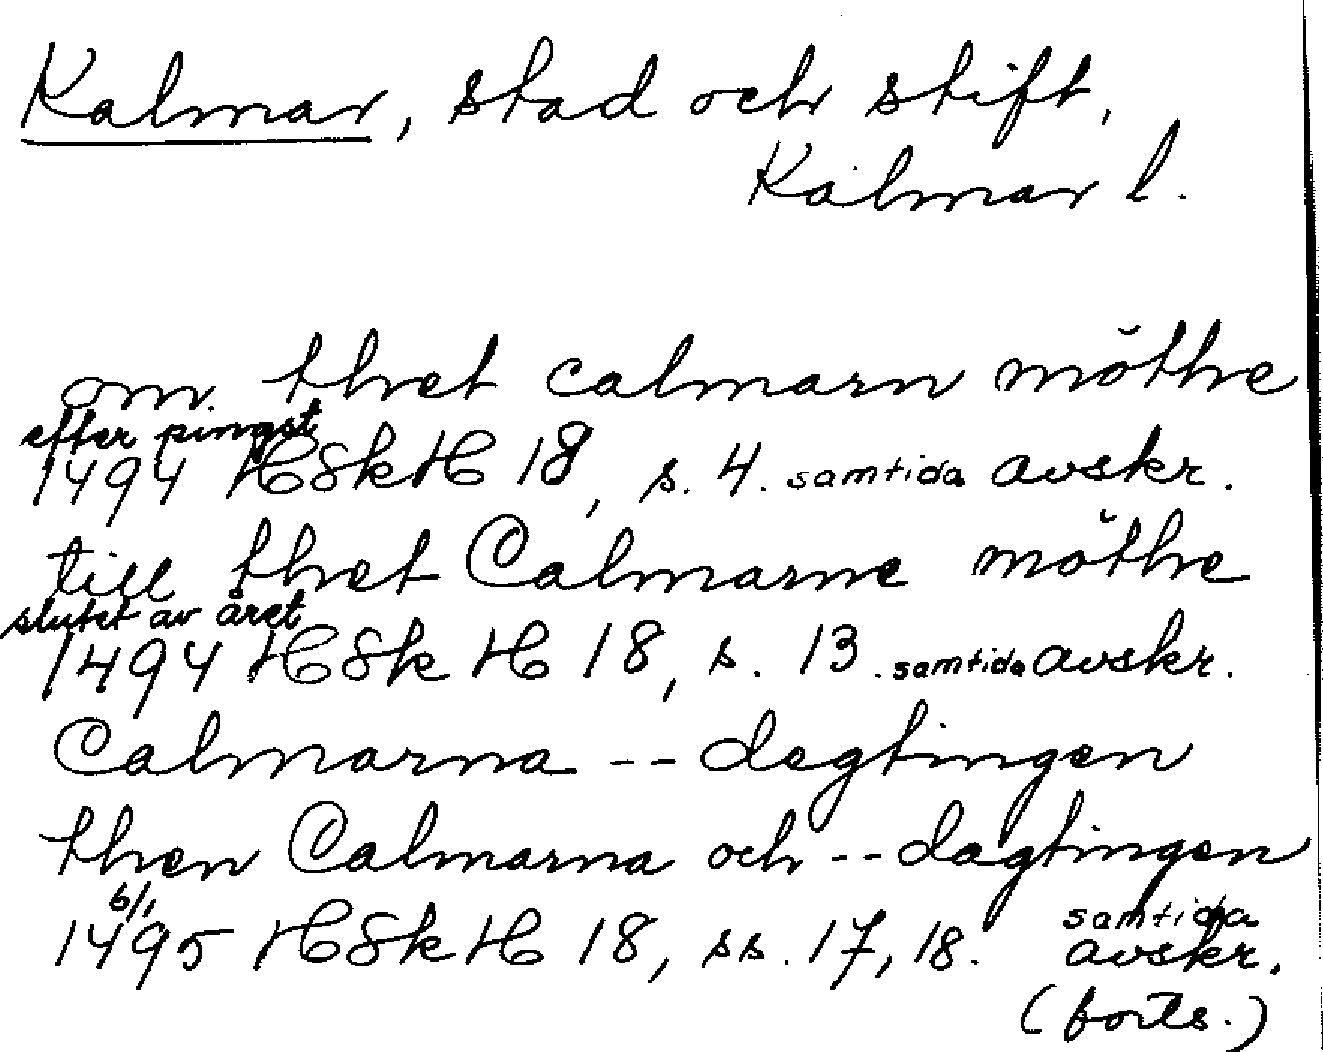 Kalmar, stad och stift,
Kalmar l.
om thet calmarn möthe
efter pingst
1494 HSkH 18, s. 4. samtida avskr.
till thet Calmarne möthe
slutet av året
1494 HSkH 18, s. 13. samtida avskr.
Calmarna -- dagtingen
then Calmarna och -- dagtingen
6/1
1495 HSkH 18, ss. 17, 18. samtida
avskr.
(forts.)